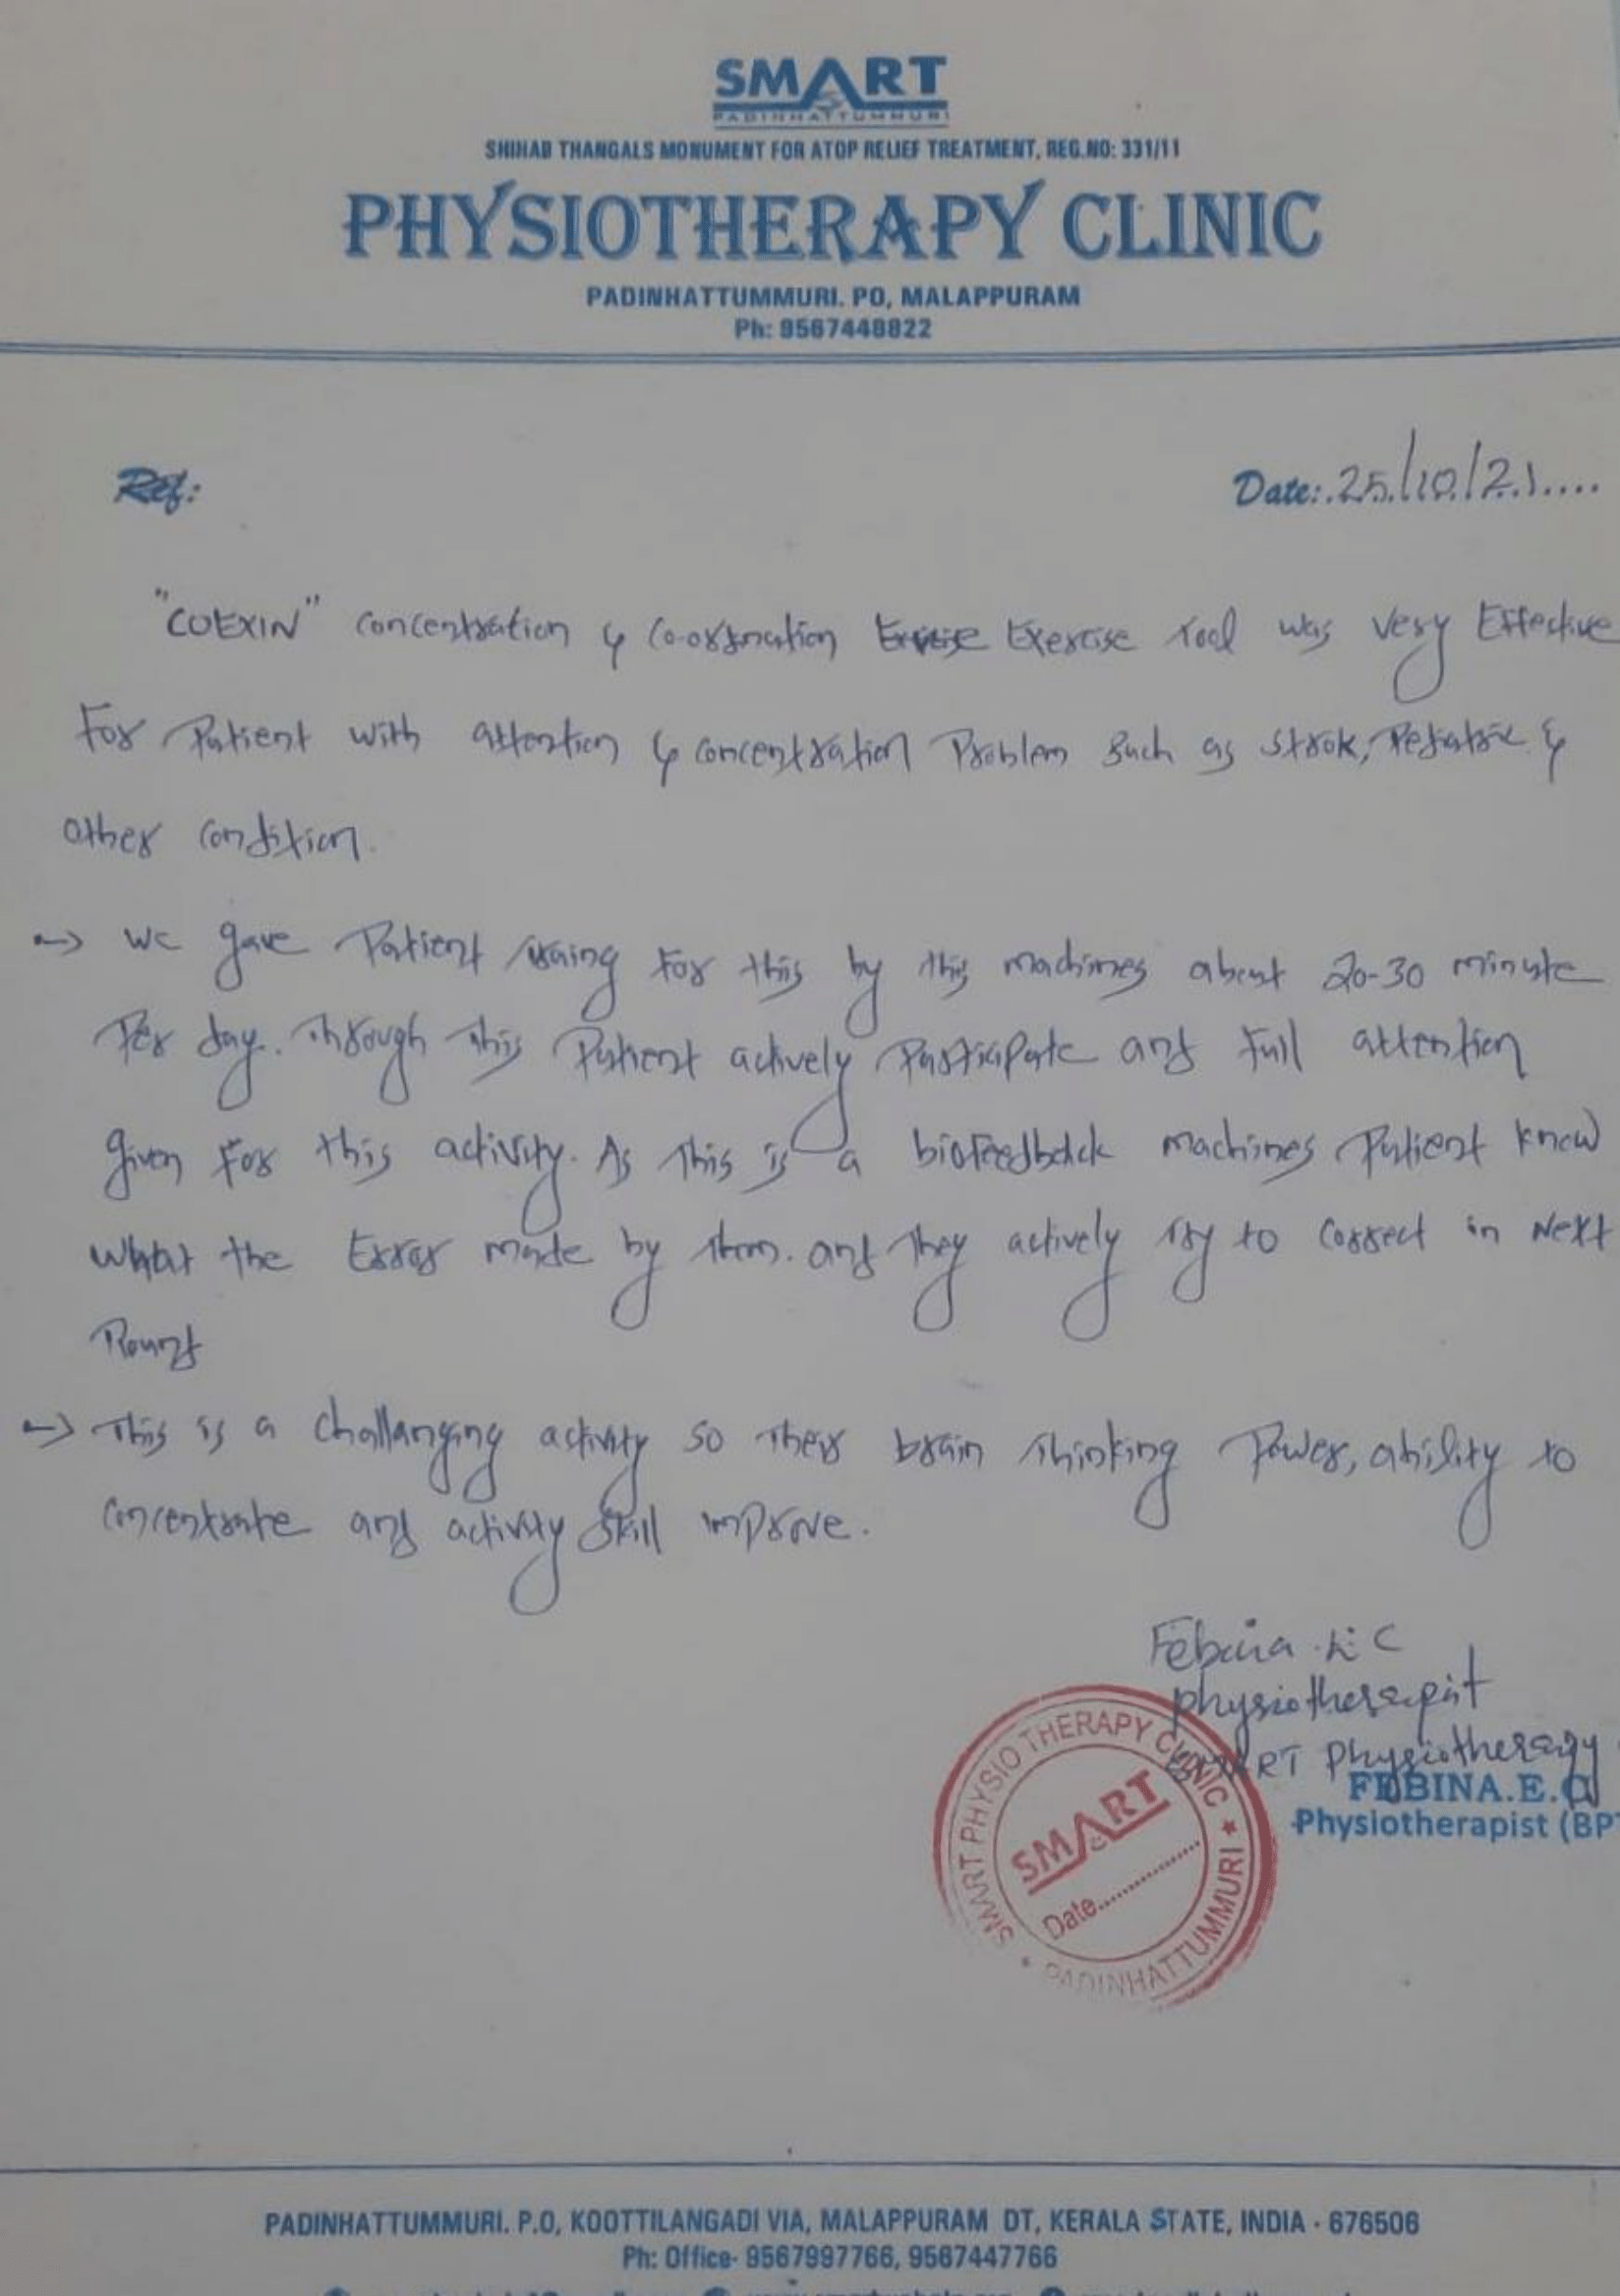 SMART
PADINHATTUMMURI
SHIHAB THANGALS MONUMENT FOR ATOP RELIEF TREATMENT, REG.NO: 331/11
PHYSIOTHERAPY CLINIC
PADINHATTUMMURI. PO, MALAPPURAM
Ph: 9567448822
Ref:
Date: 25/10/21....
"COEXIN" Concentration & Co-ordination Exercise Tool was very Effective
For Patient with attention & concentration Problem such as strok, Pediatric &
other condition.
→ We gave Patient traing for this by this machines about 20-30 minute
Per day. Through this Patient actively Participate and full attention
given for this activity. As this is a biofeedback machines Patient know
what the Error made by them. and they actively try to correct in Next
Round
→ This is a challanging activity so their brain thinking Power, ability to
concentrate and activity skill improve.
Febina E C
physiotherapist
SMART Physiotherapy
FEBINA.E.C
Physiotherapist (BPT
SMART PHYSIO THERAPY CLINIC ★
PADINHATTUMMURI ★
SMART
Date...............
PADINHATTUMMURI. P.O, KOOTTILANGADI VIA, MALAPPURAM DT, KERALA STATE, INDIA - 676506
Ph: Office- 9567997766, 9567447766